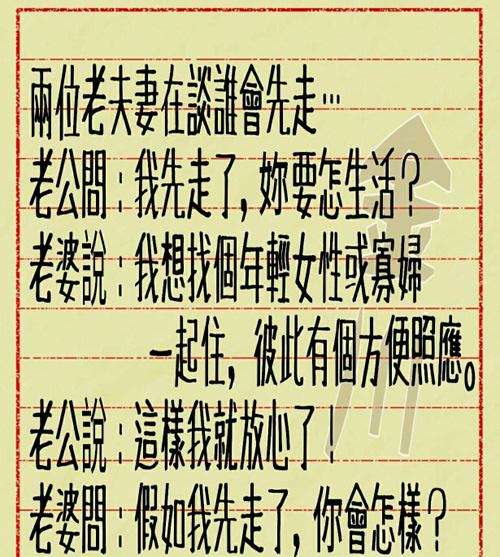 兩位老夫妻在談誰會先走…
老公問：我先走了，妳要怎生活？
老婆說：我想找個年輕女性或寡婦
一起住，彼此有個方便照應。
老公說：這樣我就放心了！
老婆問：假如我先走了，你會怎樣？